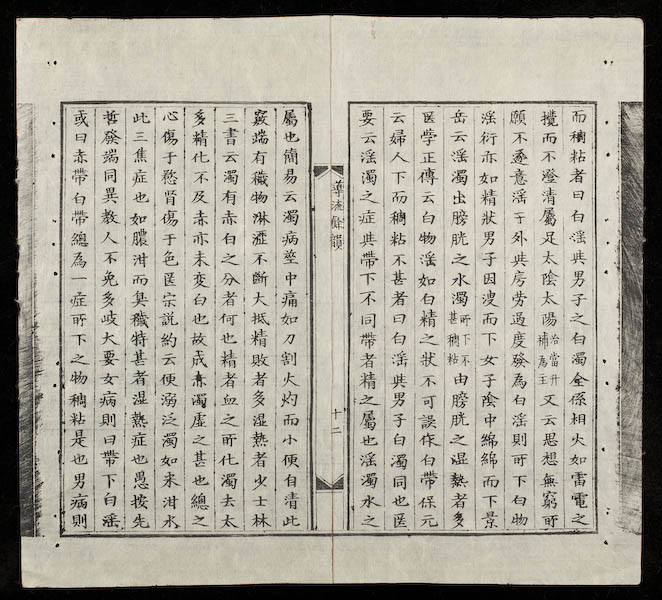 而稠粘者曰白淫與男子之白濁全係相火如雷電之
攪而不澄清屬足太陰太陽治當升補為主又云思想無窮所
願不遂意淫于外與房勞過度發為白淫則所下白物
淫衍亦如精狀男子因溲而下女子陰中綿綿而下景
岳云淫濁出膀胱之水濁所下不甚稠粘由膀胱之濕熱者多
医学正傳云白物淫如白精之狀不可誤作白帶保元
云婦人下而稠粘不甚者曰白淫與男子白濁同也医
要云淫濁之症與帶下不同帶者精之屬也淫濁水之
導流餘韻
十二
屬也簡易云濁病莖中痛如刀割火灼而小便自清此
竅端有穢物淋瀝不斷大抵精敗者多湿熱者少士林
三書云濁有赤白之分者何也精者血之所化濁去太
多精化不及赤亦未变白也故成赤濁虛之甚也總之
心傷于慾腎傷于色医宗説約云便溺泛濁如米泔水
此三焦症也如膿泔而臭穢特甚者湿熱症也愚按先
哲發端同異教人不免多岐大要女病則曰帶下白淫
或曰赤帶白帶總為一症所下之物稠粘是也男病則